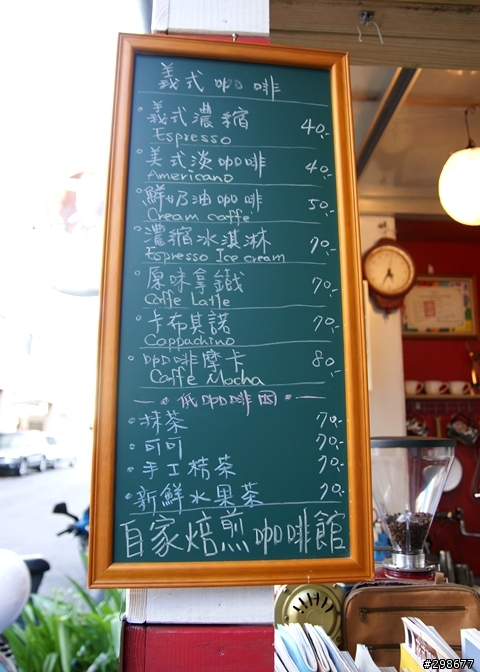 義式咖啡
義式濃縮 40.-
Espresso
美式淡咖啡 40.-
Americano
鮮奶油咖啡 50.-
Cream caffé
濃縮冰淇淋 70.-
Espresso Ice cream
原味拿鐵 70.-
Caffe Latte
卡布其諾 70.-
Cappachino
咖啡摩卡 80.-
Caffé Mocha
低咖啡因
抹茶 70.-
可可 70.-
手工精茶 70.-
新鮮水果茶 70.-
自家焙煎咖啡館
#298677